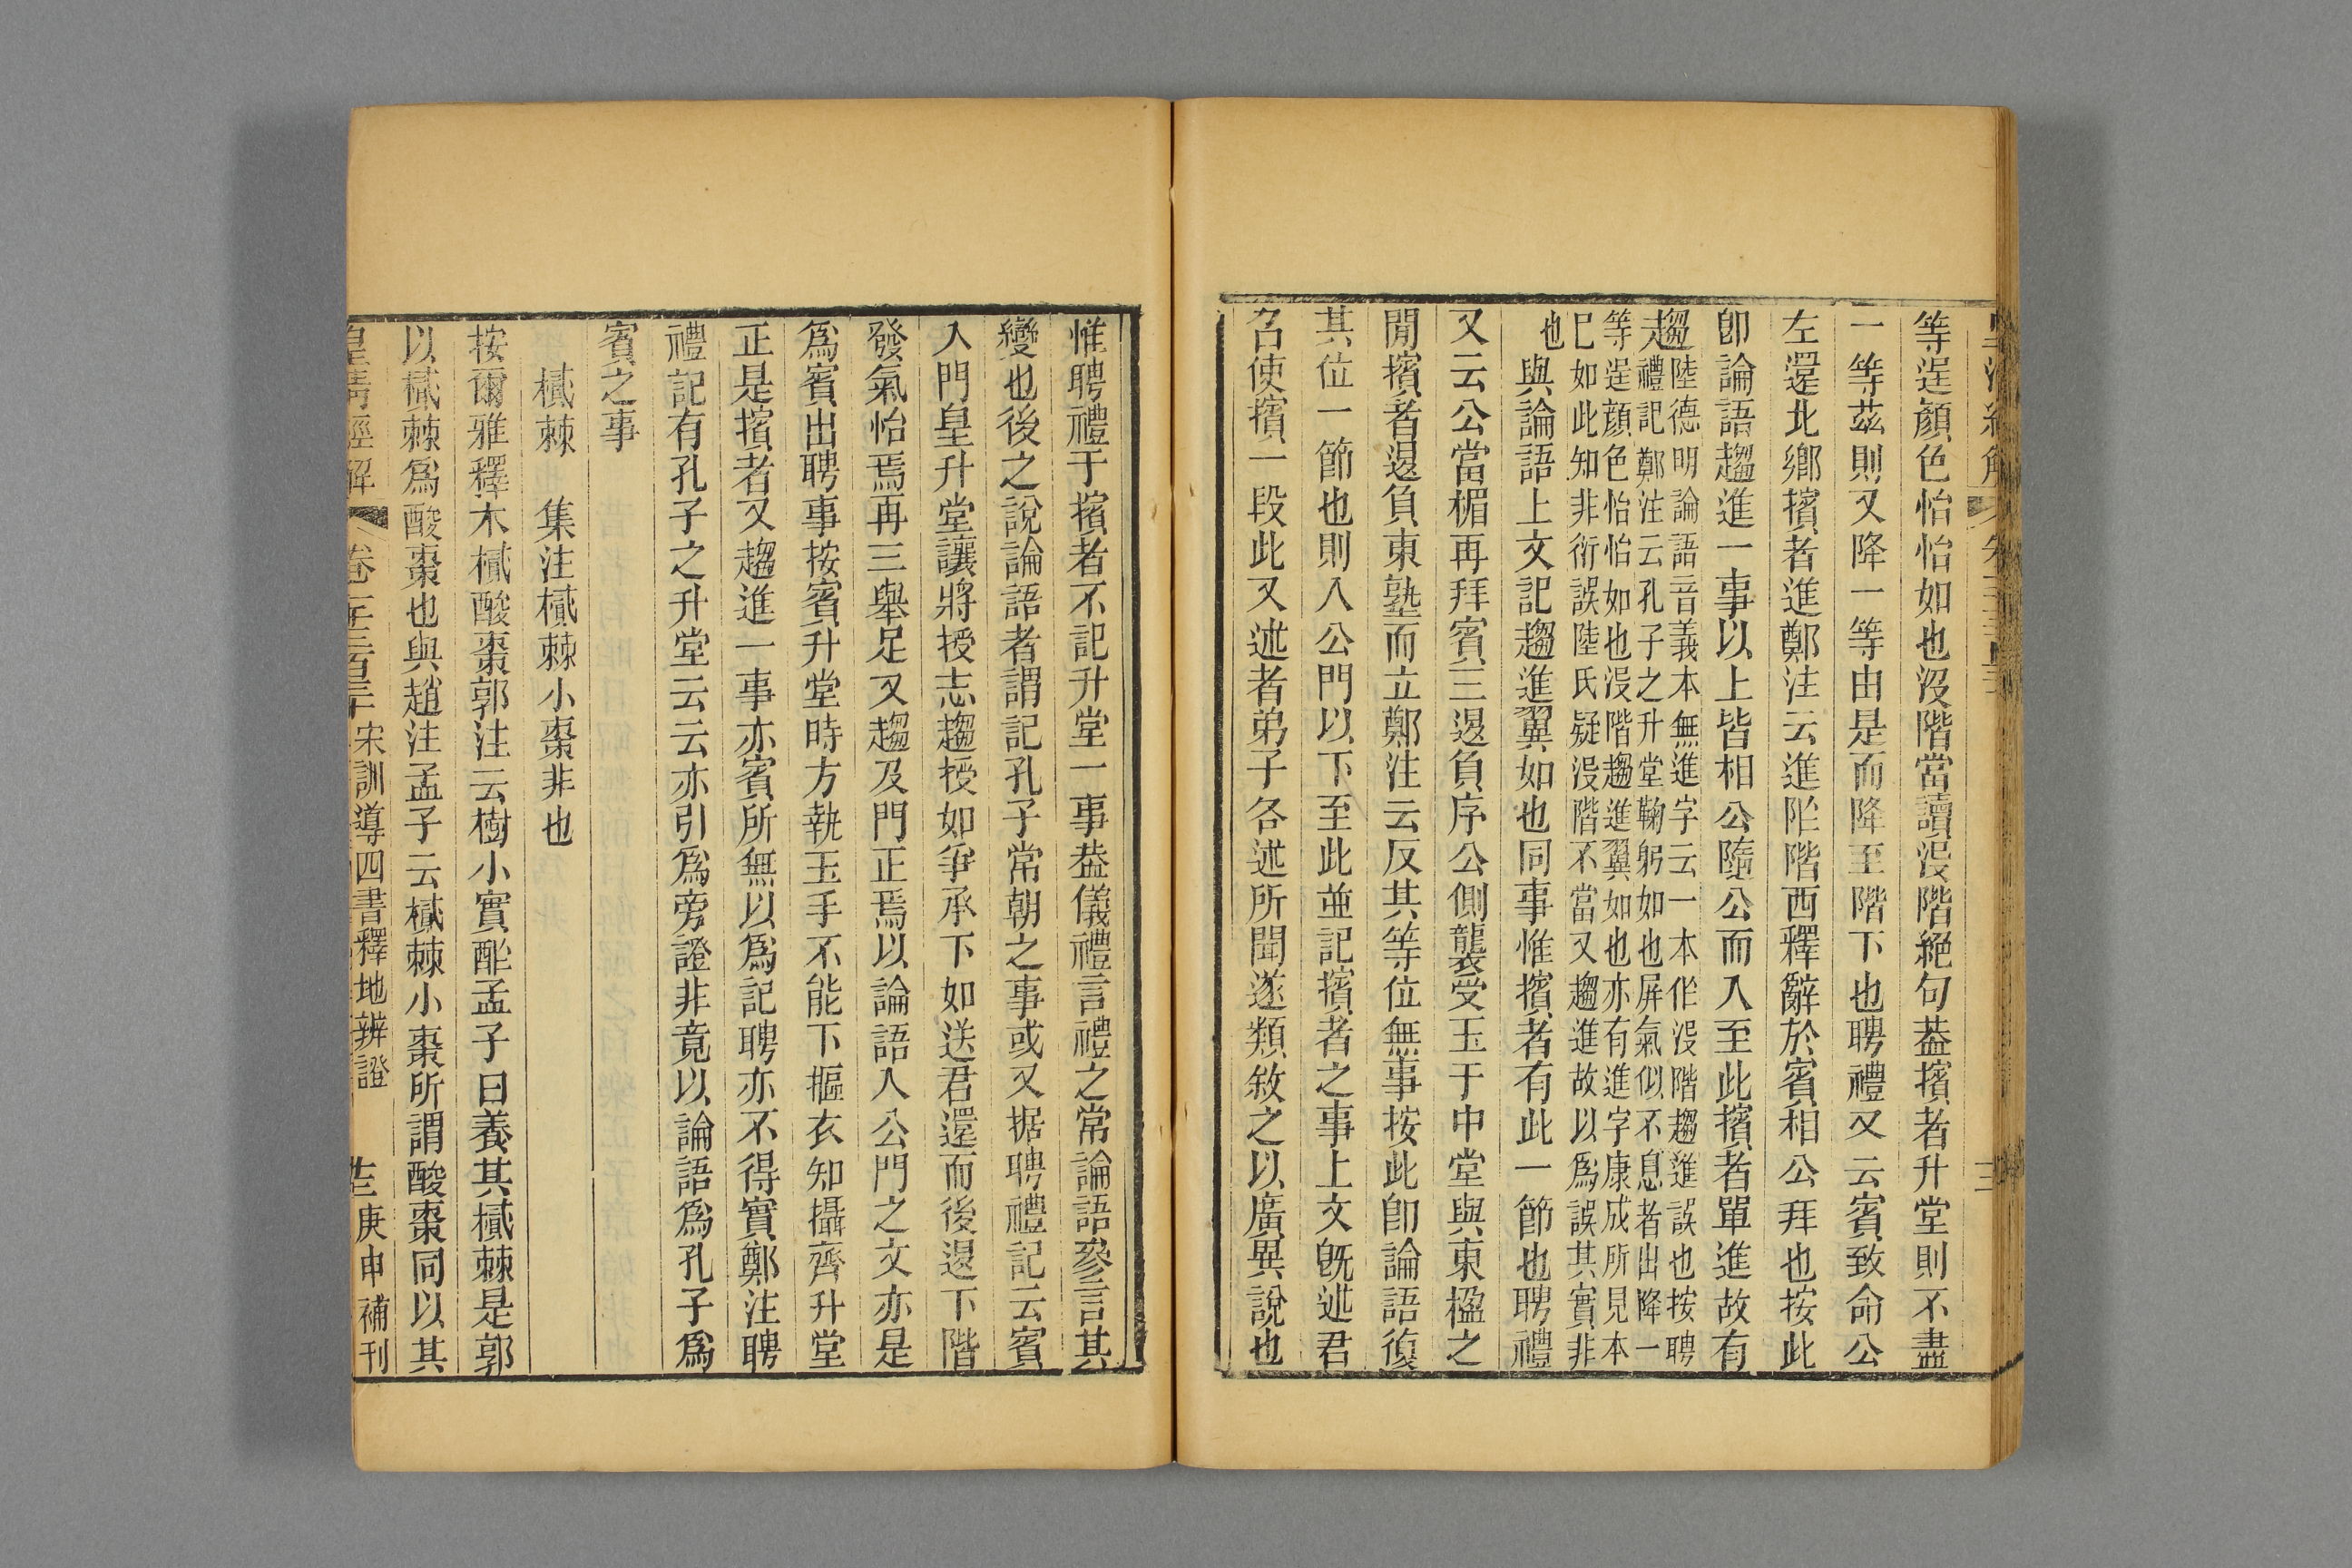 等逞顏色怡怡如也沒階當讀沒階絕句葢擯者升堂則不盡
一等茲則又降一等由是而降至階下也聘禮又云賓致命公
左還北鄉擯者進鄭注云進阼階西釋辭於賓相公拜也按此
卽論語趨進一事以上皆相公隨公而入至此擯者單進故有
趨陸德明論語音義本無進字云一本作沒階趨進誤也按聘
禮記鄭注云孔子之升堂鞠躬如也屏氣似不息者出降一
等逞顔色怡怡如也沒階趨進翼如也亦有進字康成所見本
已如此知非衍誤陸氏疑沒階不當又趨進故以爲誤其實非
也與論語上文記趨進翼如也同事惟擯者有此一節也聘禮
又云公當楣再拜賓三退負序公側襲受玉于中堂與東楹之
閒擯者退負東塾而立鄭注云反其等位無事按此卽論語復
其位一節也則入公門以下至此並記擯者之事上文旣述君
召使擯一段此又述者弟子各述所聞遂類敘之以廣異說也
惟聘禮于擯者不記升堂一事葢儀禮言禮之常論語參言其
變也後之說論語者謂記孔子常朝之事或又据聘禮記云賓
入門皇升堂讓將授志趨授如爭承下如送君還而後退下階
發氣怡焉再三舉足又趨及門正焉以論語入公門之文亦是
爲賓出聘事按賓升堂時方執玉手不能下摳衣知攝齊升堂
正是擯者又趨進一事亦賓所無以爲記聘亦不得實鄭注聘
禮記有孔子之升堂云云亦引爲旁證非竟以論語爲孔子爲
賓之事
樲棘　集注樲棘小棗非也
按爾雅釋木樲酸棗郭注云樹小實酢孟子曰養其樲棘是郭
以樲棘爲酸棗也與趙注孟子云樲棘小棗所謂酸棗同以其
皇清經解　卷一千三百三十　宋訓導四書釋地辨證　庚申補刊